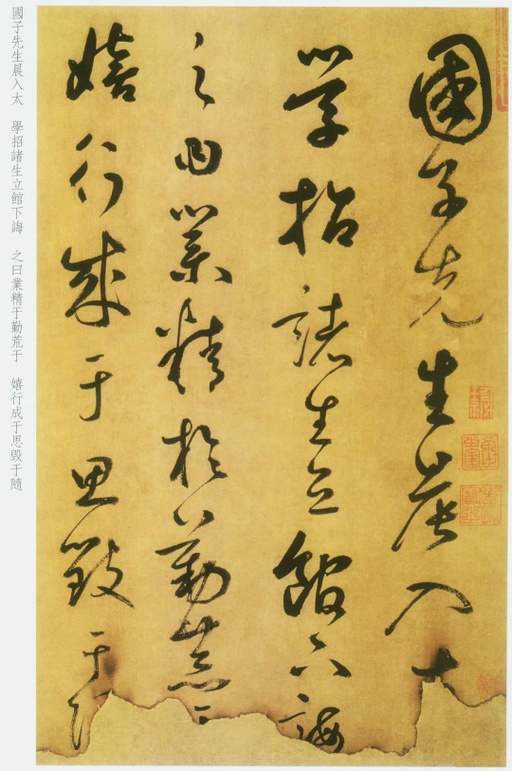 國子先生晨入太
學招諸生立館下誨
之曰業精于勤荒于
嬉行成于思毀于隨
國子先生晨入太 學招諸生立館下誨 之曰業精于勤荒于 嬉行成于思毀于隨